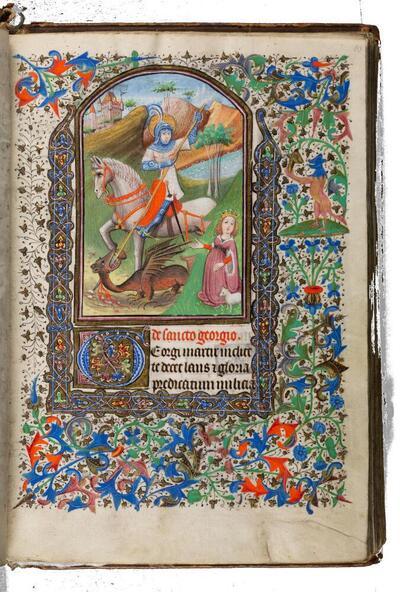 de sancto georgio.
Georgi martir inclite
te decet laus et gloria
predicatum milicia